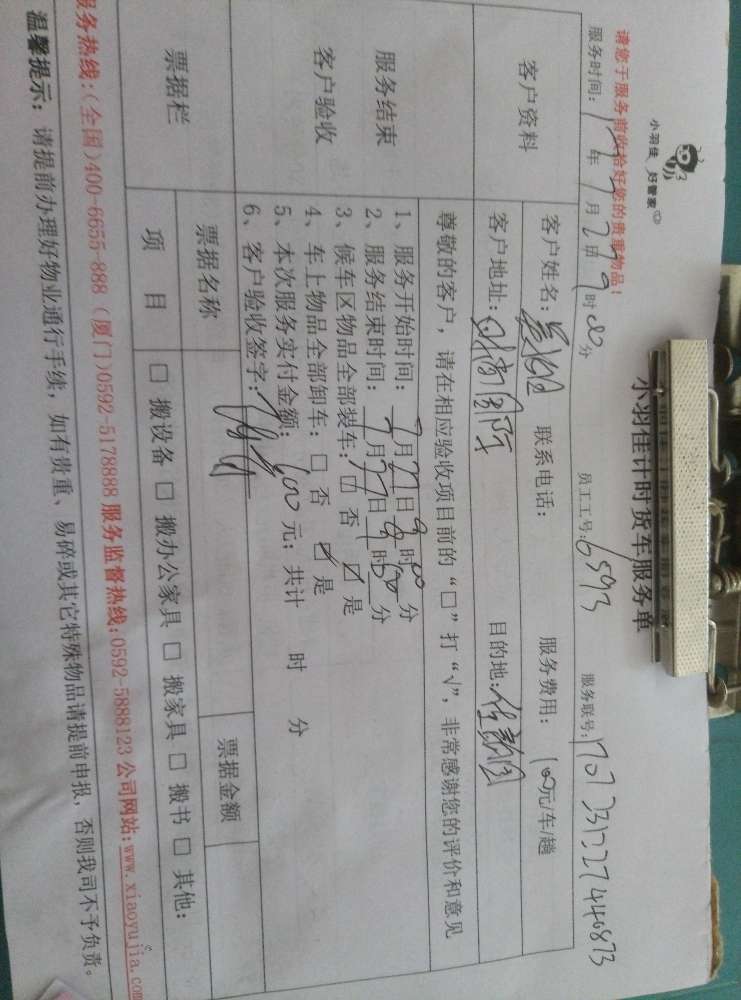 小羽佳 好管家
小羽佳计时货车服务单
请您于服务前收拾好您的贵重物品！
服务时间：17年7月27日9时00分 员工工号：6593 服务联号：
客户资料
客户姓名： 联系电话： 服务费用：100元/车/趟
客户地址：时尚国际 目的地：
服务结束
客户验收
尊敬的客户，请在相应验收项目前的“□”打“√”，非常感谢您的评价和意见
1、服务开始时间：7月27日9时00分
2、服务结束时间：7月27日 时 分
3、候车区物品全部装车：□ 否 ☑ 是
4、车上物品全部卸车：□ 否 ☑ 是
5、本次服务实付金额： 元；共计 时 分
6、客户验收签字：
票据栏
票据名称 票据金额
项 目 □ 搬设备 □ 搬办公家具 □ 搬家具 □ 搬书 □ 其他：
服务热线：（全国）400-6655-888（厦门）0592-5178888 服务监督热线：0592-5888123 公司网站：www.xiaoyujia.com
温馨提示：请提前办理好物业通行手续，如有贵重、易碎或其它特殊物品请提前申报，否则我司不予负责。